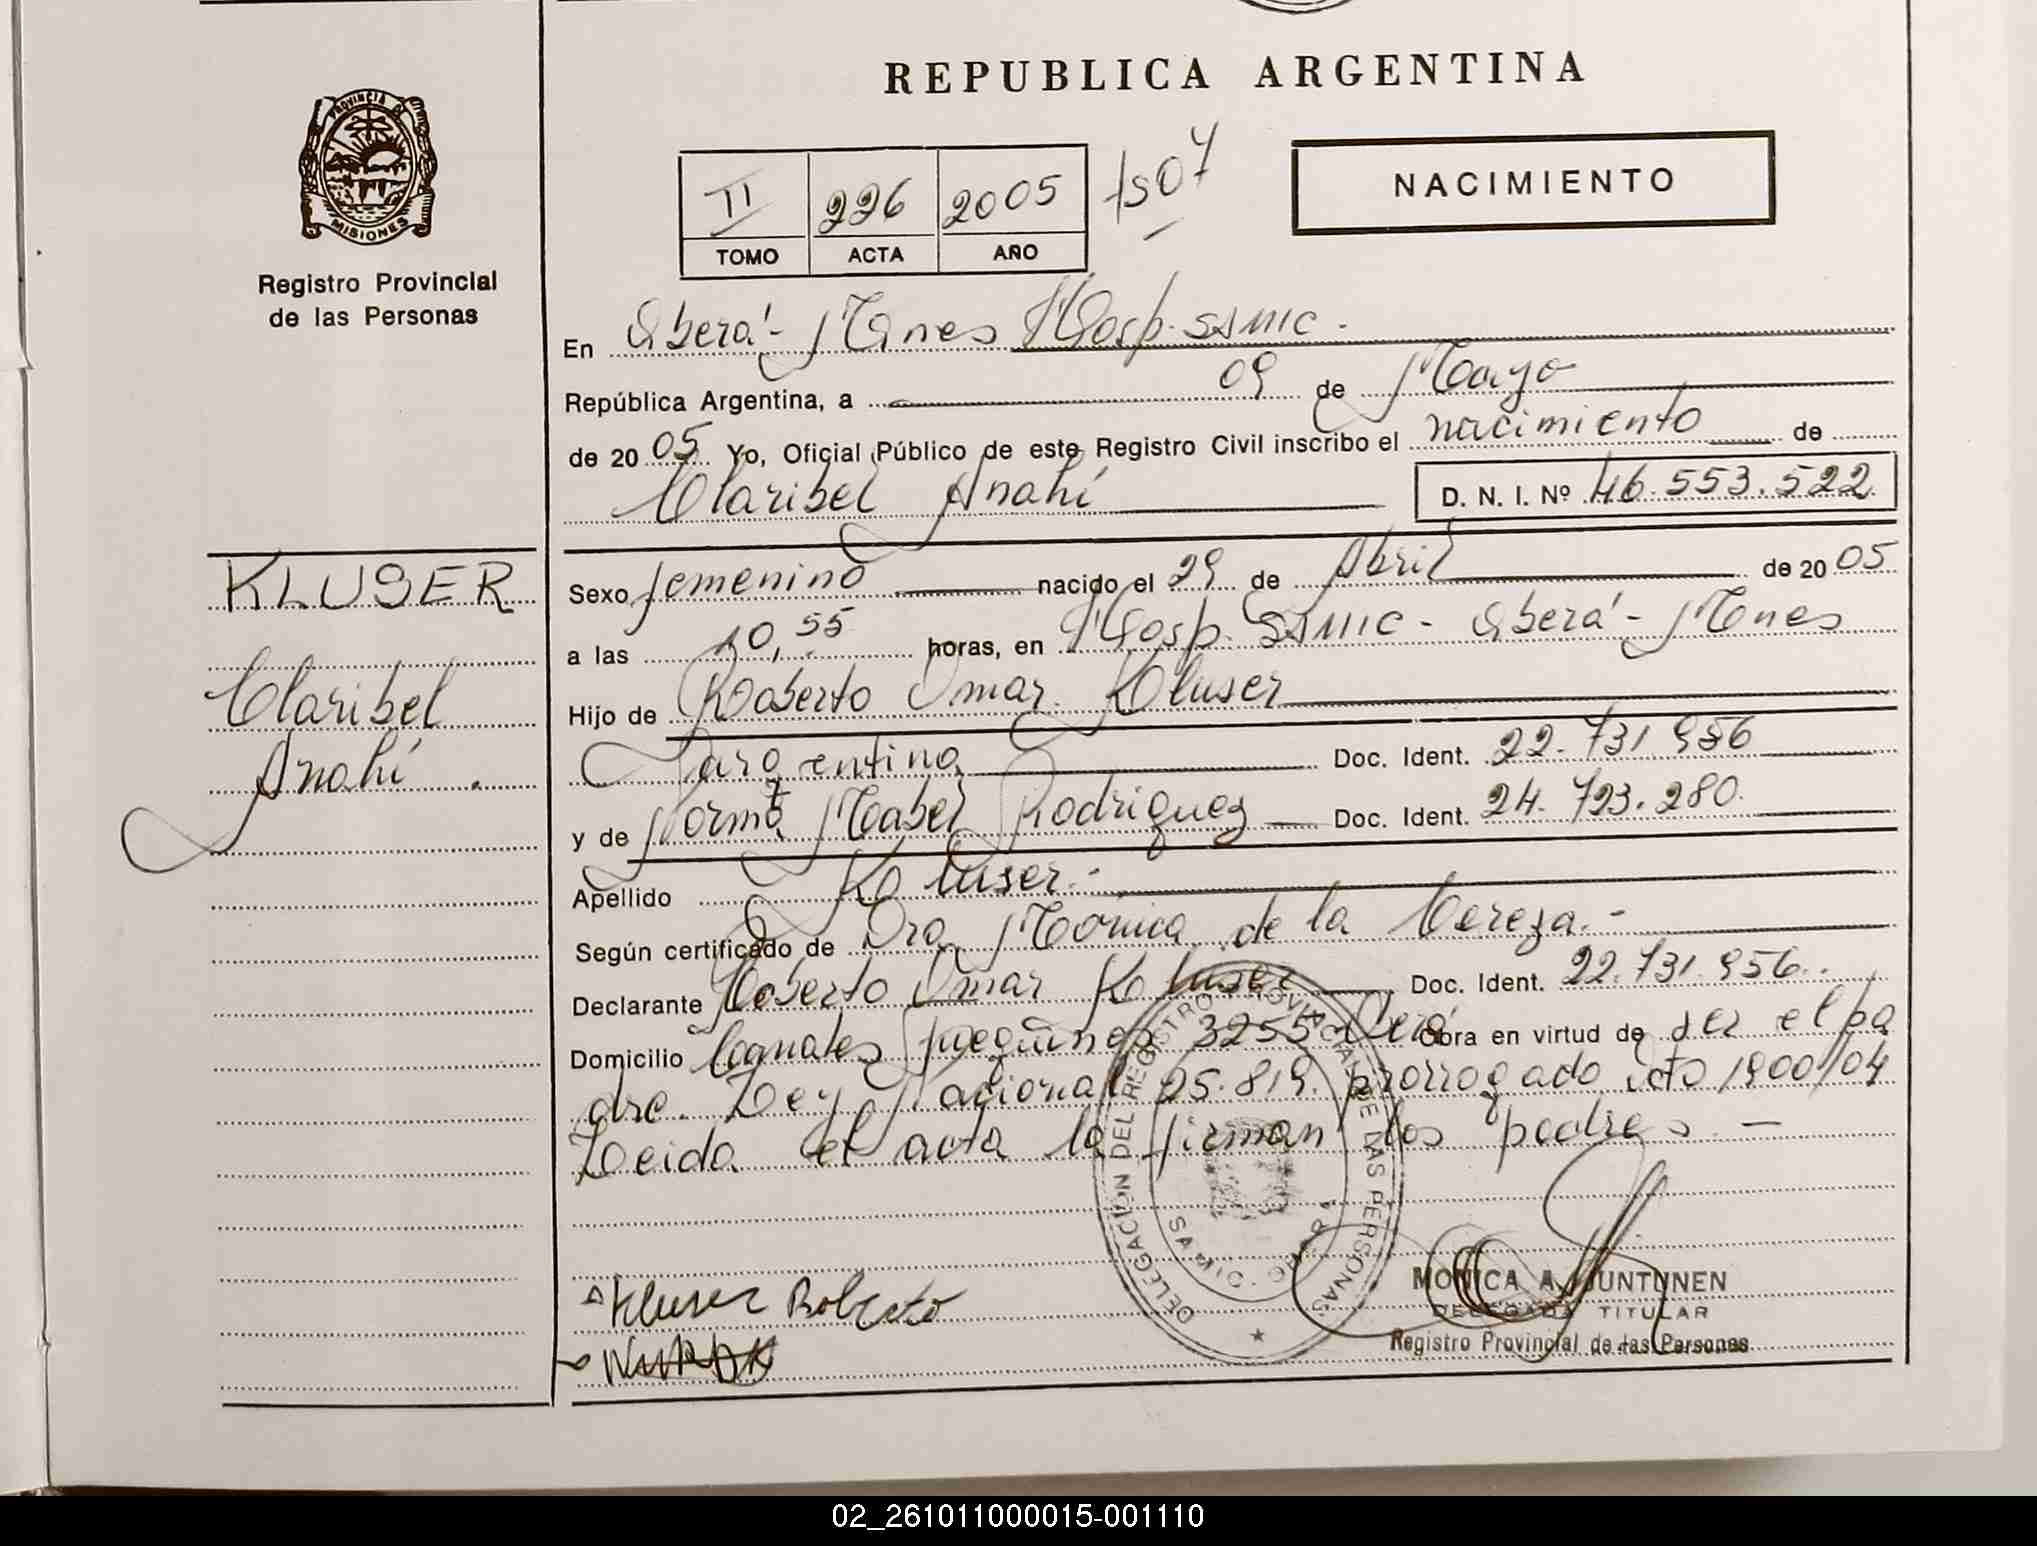 REPUBLICA ARGENTINA
PROVINCIA DE MISIONES
Registro Provincial
de las Personas
II 226 2005 1507
TOMO ACTA AÑO
NACIMIENTO
En Oberá - Mnes Hosp. SAMIC.
República Argentina, a 09 de Mayo
de 2005 Yo, Oficial Público de este Registro Civil inscribo el nacimiento de
Claribel Anahí D. N. I. Nº 46.553.522
KLUSER
Claribel
Anahí.
Sexo femenino nacido el 29 de Abril de 2005
a las 10,55 horas, en Hosp. SAMIC - Oberá - Mnes
Hijo de Roberto Omar Kluser
argentina Doc. Ident. 22.731.956
y de Norma Mabel Rodriguez Doc. Ident. 24.723.280
Apellido Kluser.-
Según certificado de Dra. Mónica de la Cereza.-
Declarante Roberto Omar Kluser Doc. Ident. 22.731.956.
Domicilio Obra en virtud de ser el pa
dre. Ley Nacional 25.819. prorrogado Dto 1900/04
Leida el acta la firman los padres -
DELEGACION DEL REGISTRO PROVINCIAL DE LAS PERSONAS
Kluser Roberto
MONICA A. JUNTUNEN
DELEGADA TITULAR
Registro Provincial de las Personas
02_261011000015-001110